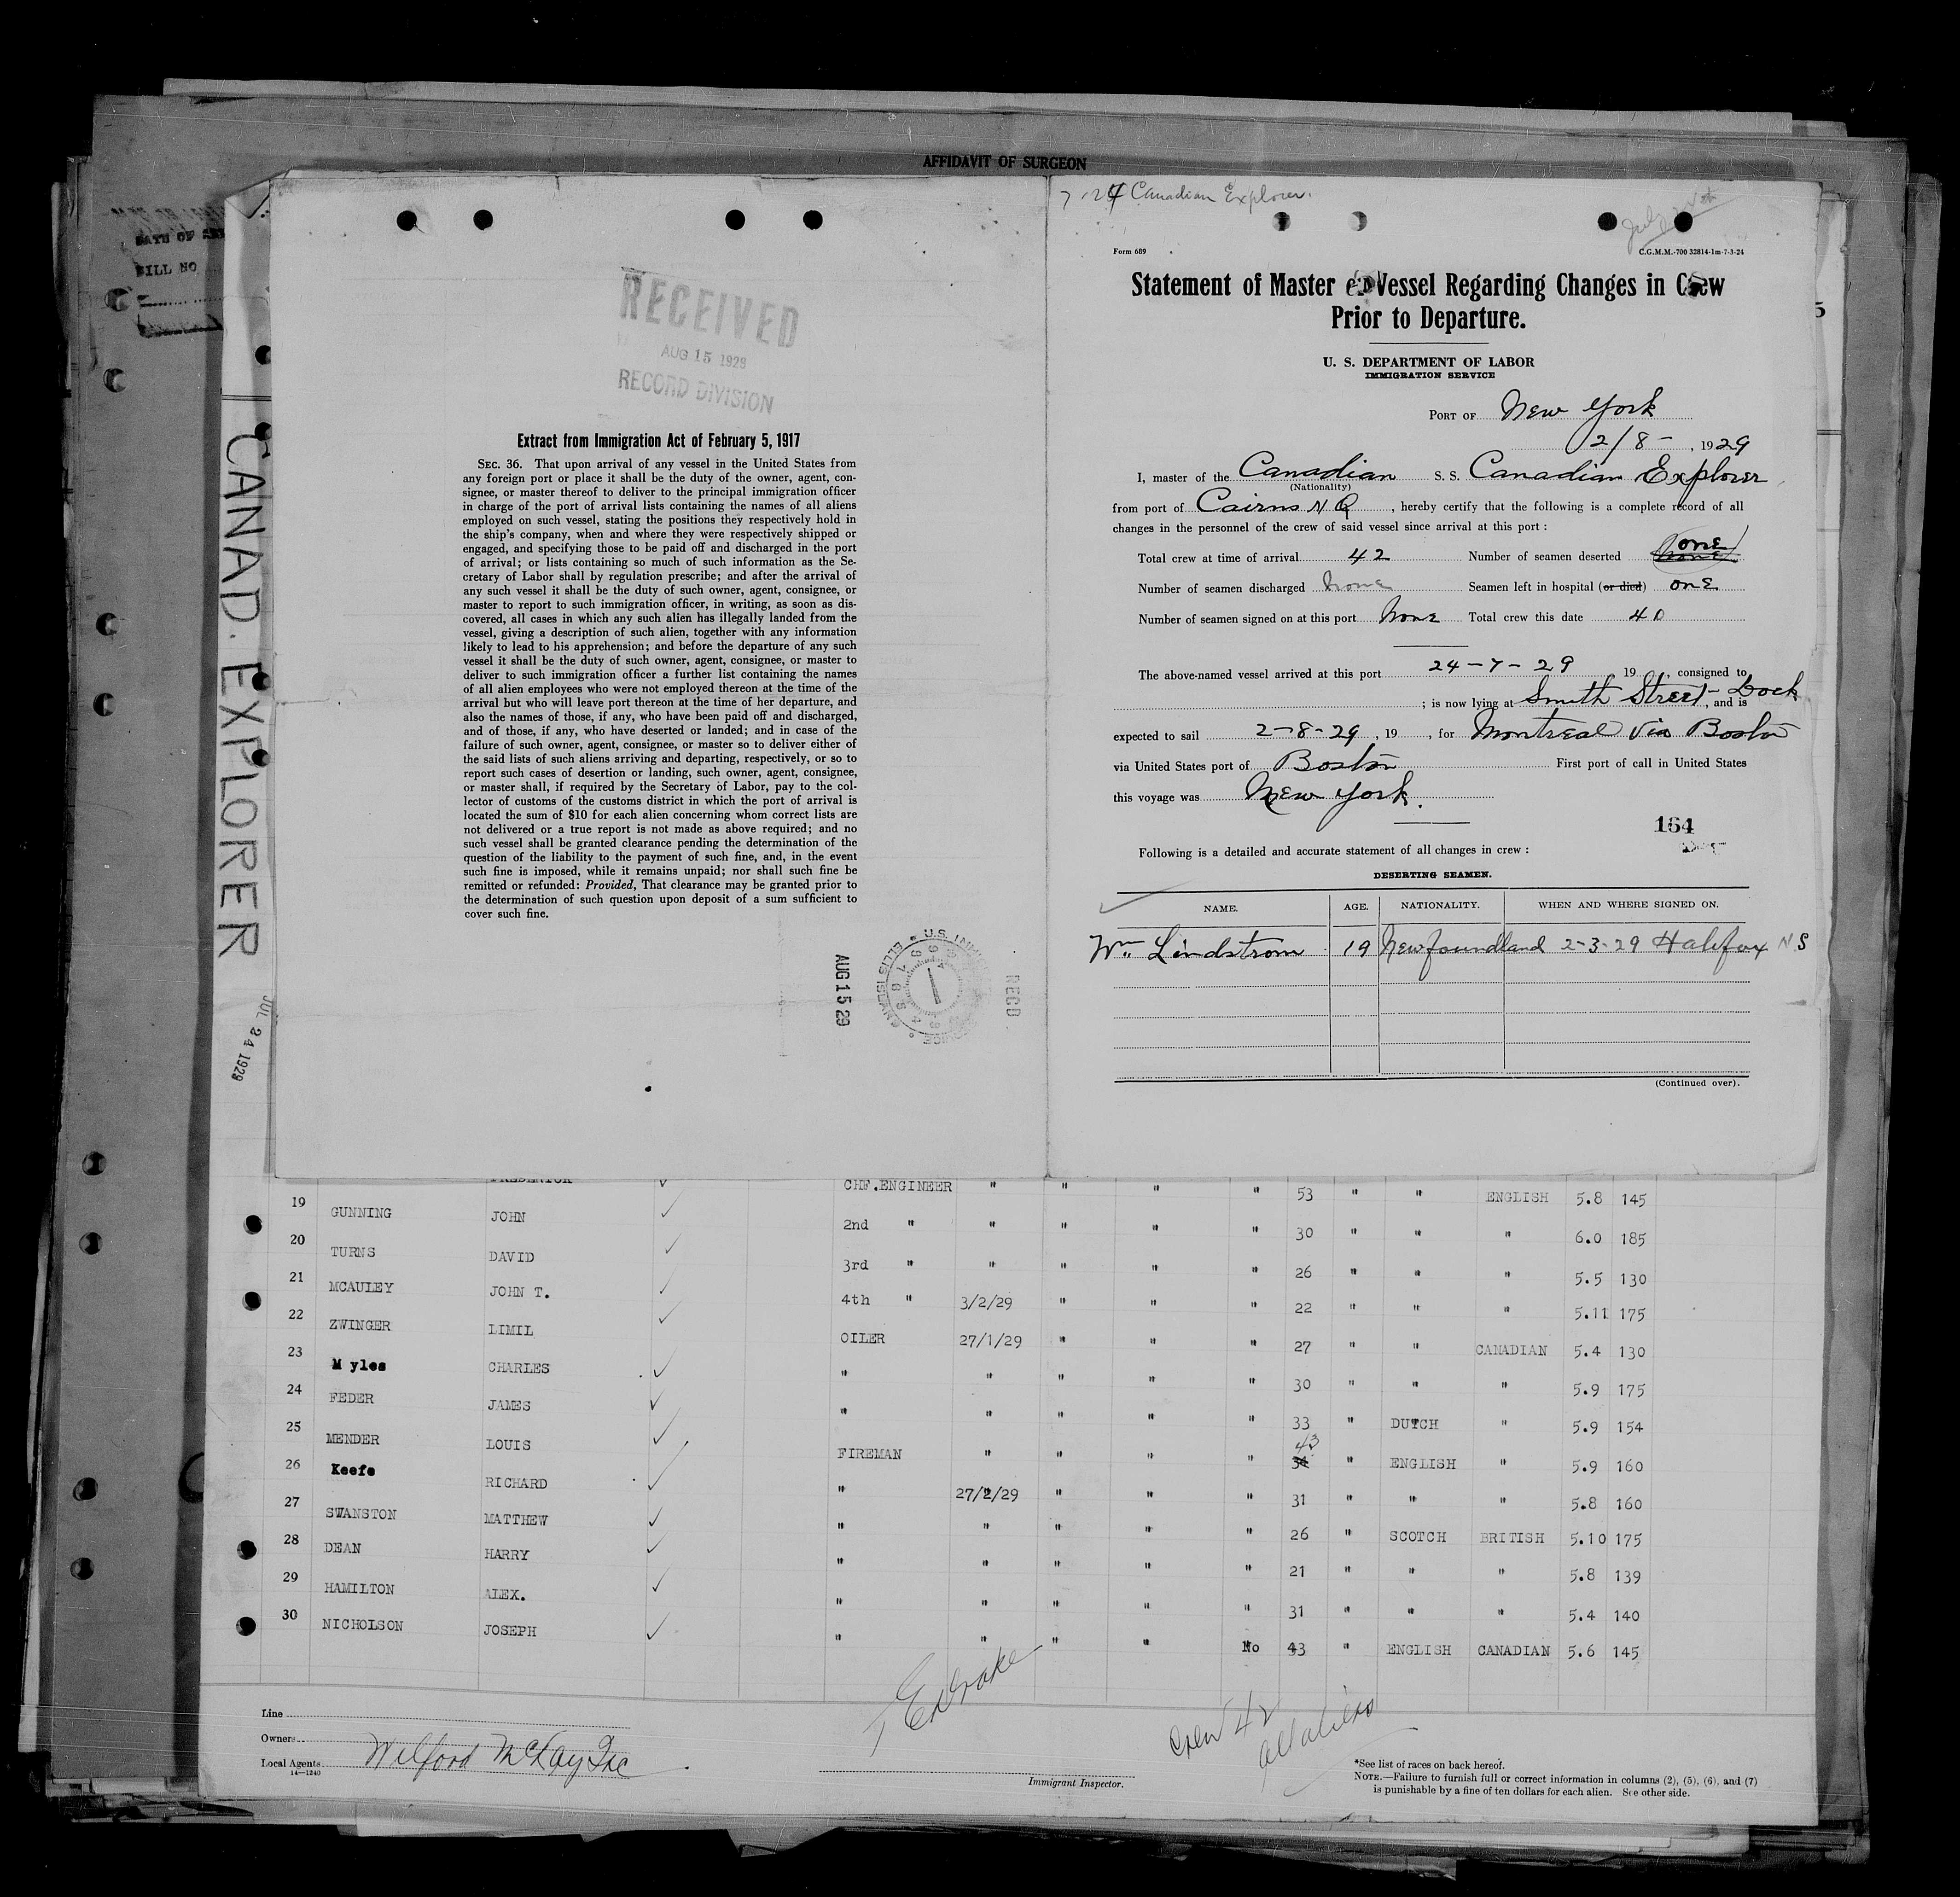 AFFIDAVIT OF SURGEON
BILL NO
CANAD. EXPLORER
JUL 24 1929
RECEIVED
AUG 15 1929
RECORD DIVISION
Extract from Immigration Act of February 5, 1917
SEC. 36. That upon arrival of any vessel in the United States from
any foreign port or place it shall be the duty of the owner, agent, con-
signee, or master thereof to deliver to the principal immigration officer
in charge of the port of arrival lists containing the names of all aliens
employed on such vessel, stating the positions they respectively hold in
the ship's company, when and where they were respectively shipped or
engaged, and specifying those to be paid off and discharged in the port
of arrival; or lists containing so much of such information as the Se-
cretary of Labor shall by regulation prescribe; and after the arrival of
any such vessel it shall be the duty of such owner, agent, consignee, or
master to report to such immigration officer, in writing, as soon as dis-
covered, all cases in which any such alien has illegally landed from the
vessel, giving a description of such alien, together with any information
likely to lead to his apprehension; and before the departure of any such
vessel it shall be the duty of such owner, agent, consignee, or master to
deliver to such immigration officer a further list containing the names
of all alien employees who were not employed thereon at the time of the
arrival but who will leave port thereon at the time of her departure, and
also the names of those, if any, who have been paid off and discharged,
and of those, if any, who have deserted or landed; and in case of the
failure of such owner, agent, consignee, or master so to deliver either of
the said lists of such aliens arriving and departing, respectively, or so to
report such cases of desertion or landing, such owner, agent, consignee,
or master shall, if required by the Secretary of Labor, pay to the col-
lector of customs of the customs district in which the port of arrival is
located the sum of $10 for each alien concerning whom correct lists are
not delivered or a true report is not made as above required; and no
such vessel shall be granted clearance pending the determination of the
question of the liability to the payment of such fine, and, in the event
such fine is imposed, while it remains unpaid; nor shall such fine be
remitted or refunded: Provided, That clearance may be granted prior to
the determination of such question upon deposit of a sum sufficient to
cover such fine.
AUG 15 29
RECD
7-24 Canadian Explorer.
Form 689
C.G.M.M.-700 32814-1m-7-3-24
Statement of Master of Vessel Regarding Changes in Crew
Prior to Departure.
U. S. DEPARTMENT OF LABOR
IMMIGRATION SERVICE
PORT OF New York
2/8- , 1929
I, master of the Canadian S. S. Canadian Explorer
(Nationality)
from port of Cairns N Q , hereby certify that the following is a complete record of all
changes in the personnel of the crew of said vessel since arrival at this port :
Total crew at time of arrival 42 Number of seamen deserted one
Number of seamen discharged None Seamen left in hospital (or died) one
Number of seamen signed on at this port None Total crew this date 40
The above-named vessel arrived at this port 24-7-29 19 , consigned to
; is now lying at Smith Street-Dock , and is
expected to sail 2-8-29 , 19 , for Montreal via Boston
via United States port of Boston First port of call in United States
this voyage was New York.
164
Following is a detailed and accurate statement of all changes in crew :
DESERTING SEAMEN.
NAME. AGE. NATIONALITY. WHEN AND WHERE SIGNED ON.
Wm Lindstrom 19 Newfoundland 2-3-29 Halifax N S
(Continued over).
FREDERICK CHF.ENGINEER " " " " 53 " " ENGLISH 5.8 145
19 GUNNING JOHN 2nd " " " " " 30 " " " 6.0 185
20 TURNS DAVID 3rd " " " " " 26 " " " 5.5 130
21 MCAULEY JOHN T. 4th " 3/2/29 " " " 22 " " " 5.11 175
22 ZWINGER LIMIL OILER 27/1/29 " " " 27 " " CANADIAN 5.4 130
23 Myles CHARLES " " " " " 30 " " " 5.9 175
24 FEDER JAMES " " " " " 33 " DUTCH " 5.9 154
25 MENDER LOUIS FIREMAN " " " " 43 " ENGLISH " 5.9 160
26 Keefe RICHARD " 27/2/29 " " " 31 " " " 5.8 160
27 SWANSTON MATTHEW " " " " " 26 " SCOTCH BRITISH 5.10 175
28 DEAN HARRY " " " " " 21 " " " 5.8 139
29 HAMILTON ALEX. " " " " " 31 " " " 5.4 140
30 NICHOLSON JOSEPH " " " " No 43 " ENGLISH CANADIAN 5.6 145
Line
Owners
Local Agents Wilford McKay Inc
14—1240
Immigrant Inspector.
Crew 42
all aliens
*See list of races on back hereof.
NOTE.—Failure to furnish full or correct information in columns (2), (5), (6), and (7)
is punishable by a fine of ten dollars for each alien. See other side.